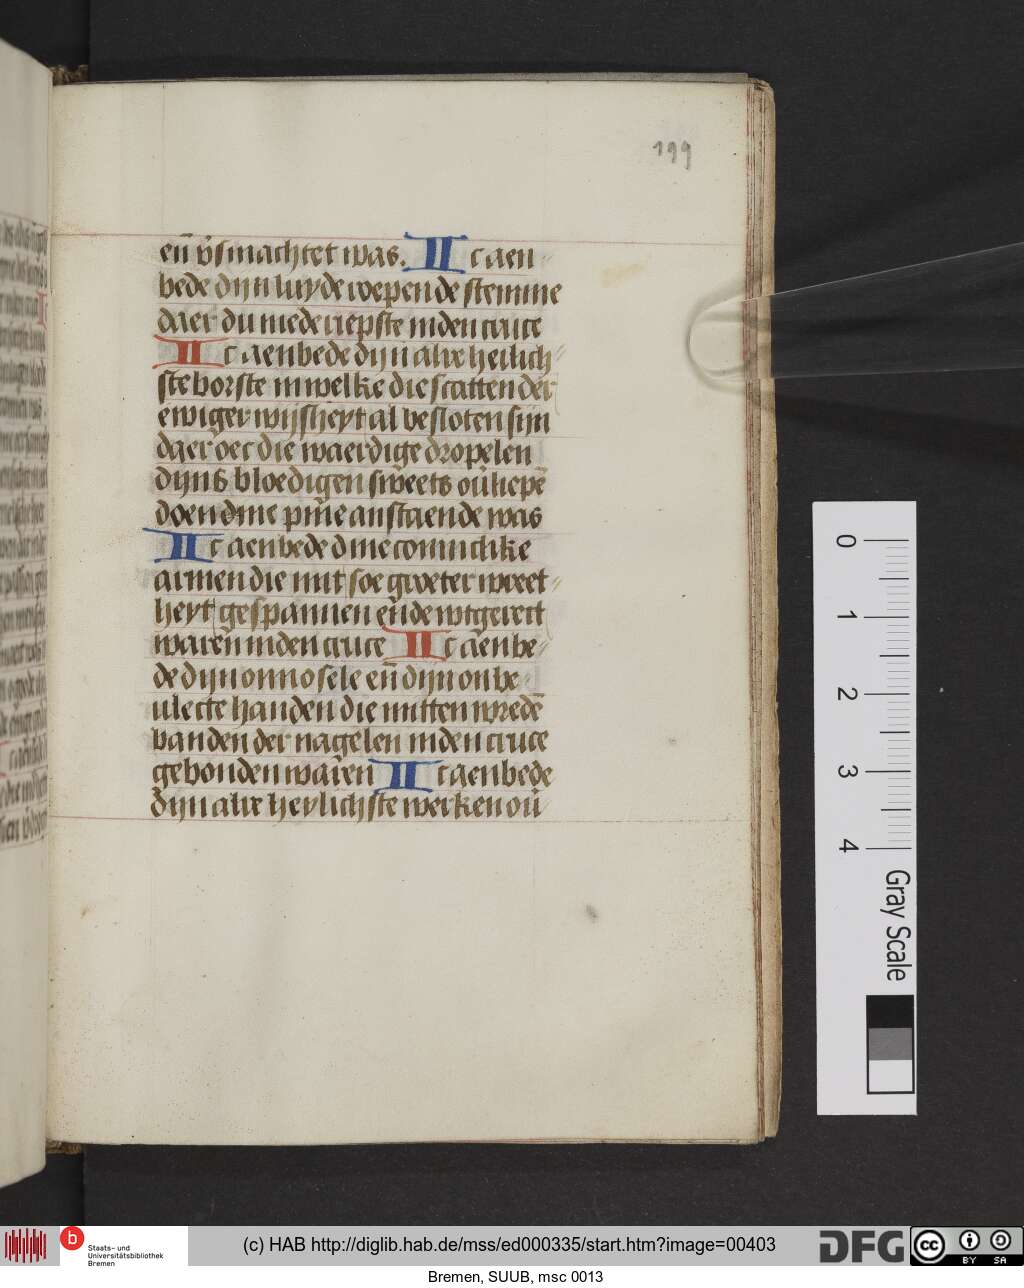 199
en̄ v̄smachtet was. Ic aen-
bede dijn luyde roepende stemme
daer du mede riepste inden cruce
Ic aenbede dijn alre heilich-
ste borste in welke die scatten der
ewiger wijsheyt al besloten sijn
daer oec die waerdige dropelen
dijns bloedigen sweets ou̅liepe̅
doen dine pi̅ne anstaende was
Ic aenbede dine coninclike
armen die mit soe groeter wreet-
heyt gespannen en̅de wtgerect
waren inden cruce Ic aenbe-
de dijn onnosele en̄ dijn onbe-
ulecte handen die mitten wrede̅
banden der nagelen inden cruce
gebonden waren Ic aenbede
dijn alre heylichste werken ou̅
0
1
2
3
4
Gray Scale
b
Staats- und
Universitätsbibliothek
Bremen
(c) HAB http://diglib.hab.de/mss/ed000335/start.htm?image=00403
DFG
cc
BY SA
Bremen, SUUB, msc 0013